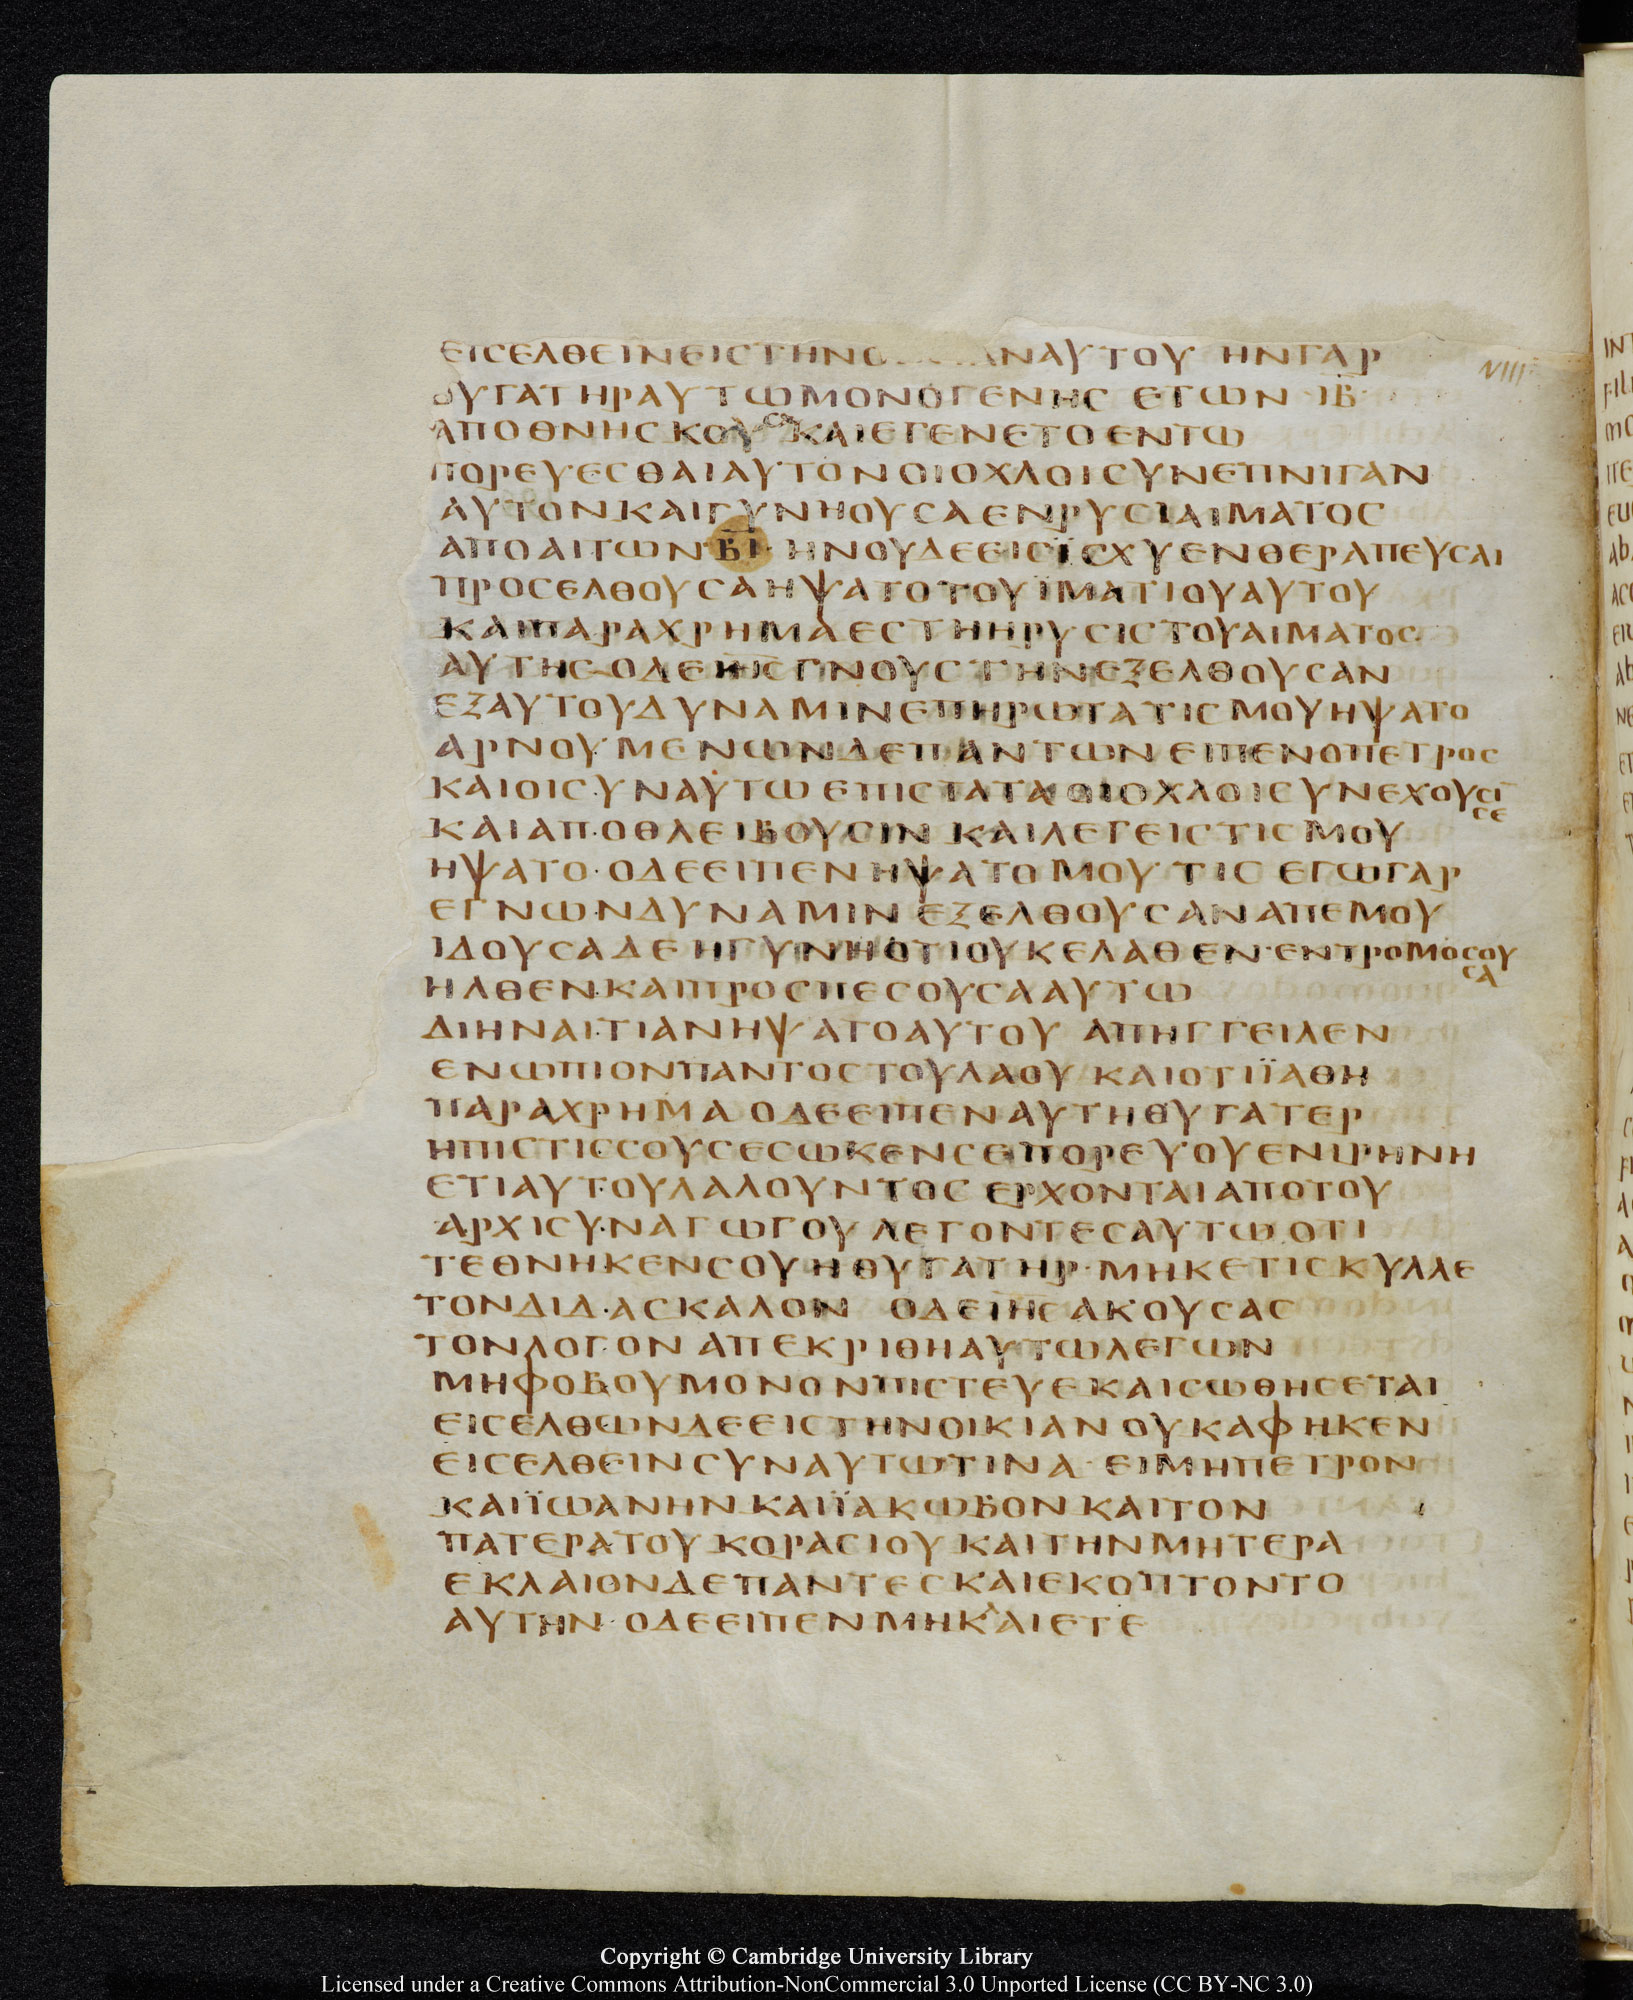 ΕΙCΕΛΘΕΙΝΕΙCΤΗΝΟ ΑΝΑΥΤΟΥ ΗΝΓΑΡ
VIII
ΘΥΓΑΤΗΡΑΥΤΩΜΟΝΟΓΕΝΗC ΕΤΩΝ ΙΒ
ΑΠΟΘΝΗCΚΟΥCΑ ΚΑΙΕΓΕΝΕΤΟΕΝΤΩ
ΠΟΡΕΥΕCΘΑΙΑΥΤΟΝΟΙΟΧΛΟΙCΥΝΕΠΝΙΓΑΝ
ΑΥΤΟΝΚΑΙΓΥΝΗΟΥCΑΕΝΡΥCΙΑΙΜΑΤΟC
ΑΠΟΑΙΤΩΝ ΒΙ· ΗΝΟΥΔΕΕΙCΪCΧΥΕΝΘΕΡΑΠΕΥCΑΙ
ΠΡΟCΕΛΘΟΥCΑΗΨΑΤΟΤΟΥΪΜΑΤΙΟΥΑΥΤΟΥ
ΚΑΙΠΑΡΑΧΡΗΜΑΕCΤΗΗΡΥCΙCΤΟΥΑΙΜΑΤΟC
ΑΥΤΗC·ΟΔΕΙΗCΓΝΟΥCΤΗΝΕΞΕΛΘΟΥCΑΝ
ΕΞΑΥΤΟΥΔΥΝΑΜΙΝΕΠΗΡΩΤΑΤΙCΜΟΥΗΨΑΤΟ
ΑΡΝΟΥΜΕΝΩΝΔΕΠΑΝΤΩΝΕΙΠΕΝΟΠΕΤΡΟC
ΚΑΙΟΙCΥΝΑΥΤΩ ΕΠΙCΤΑΤΑΟΙΟΧΛΟΙCΥΝΕΧΟΥCΙ
CΕ
ΚΑΙΑΠΟΘΛΕΙΒΟΥCΙΝ ΚΑΙΛΕΓΕΙCΤΙCΜΟΥ
ΗΨΑΤΟ·ΟΔΕΕΙΠΕΝΗΨΑΤΟΜΟΥΤΙC ΕΓΩΓΑΡ
ΕΓΝΩΝΔΥΝΑΜΙΝ ΕΞΕΛΘΟΥCΑΝΑΠΕΜΟΥ
ΙΔΟΥCΑΔΕΗΓΥΝΗΟΤΙΟΥΚΕΛΑΘΕΝ·ΕΝΤΡΟΜΟCΟΥ
CΑ
ΗΛΘΕΝΚΑΙΠΡΟCΠΕCΟΥCΑΑΥΤΩ
ΔΙΗΝΑΙΤΙΑΝΗΨΑΤΟΑΥΤΟΥ ΑΠΗΓΓΕΙΛΕΝ
ΕΝΩΠΙΟΝΠΑΝΤΟCΤΟΥΛΑΟΥ ΚΑΙΟΤΙΪΑΘΗ
ΠΑΡΑΧΡΗΜΑ ΟΔΕΕΙΠΕΝΑΥΤΗΘΥΓΑΤΕΡ
ΗΠΙCΤΙCCΟΥCΕCΩΚΕΝCΕΠΟΡΕΥΟΥΕΝΙΡΗΝΗ
ΕΤΙΑΥΤΟΥΛΑΛΟΥΝΤΟC ΕΡΧΟΝΤΑΙΑΠΟΤΟΥ
ΑΡΧΙCΥΝΑΓΩΓΟΥ ΛΕΓΟΝΤΕCΑΥΤΩΟΤΙ
ΤΕΘΝΗΚΕΝCΟΥΗΘΥΓΑΤΗΡ·ΜΗΚΕΤΙCΚΥΛΛΕ
ΤΟΝΔΙΔΑCΚΑΛΟΝ ΟΔΕΙΗCΑΚΟΥCΑC
ΤΟΝΛΟΓΟΝ ΑΠΕΚΡΙΘΗΑΥΤΩΛΕΓΩΝ
ΜΗΦΟΒΟΥΜΟΝΟΝΠΙCΤΕΥΕΚΑΙCΩΘΗCΕΤΑΙ
ΕΙCΕΛΘΩΝΔΕΕΙCΤΗΝΟΙΚΙΑΝ ΟΥΚΑΦΗΚΕΝ
ΕΙCΕΛΘΕΙΝCΥΝΑΥΤΩΤΙΝΑ ΕΙΜΗΠΕΤΡΟΝ
ΚΑΙΪΩΑΝΗΝΚΑΙΪΑΚΩΒΟΝΚΑΙΤΟΝ
ΠΑΤΕΡΑΤΟΥΚΟΡΑCΙΟΥΚΑΙΤΗΝΜΗΤΕΡΑ
ΕΚΛΑΙΟΝΔΕΠΑΝΤΕCΚΑΙΕΚΟΠΤΟΝΤΟ
ΑΥΤΗΝ·ΟΔΕΕΙΠΕΝΜΗΚΛΑΙΕΤΕ
Copyright © Cambridge University Library
Licensed under a Creative Commons Attribution-NonCommercial 3.0 Unported License (CC BY-NC 3.0)